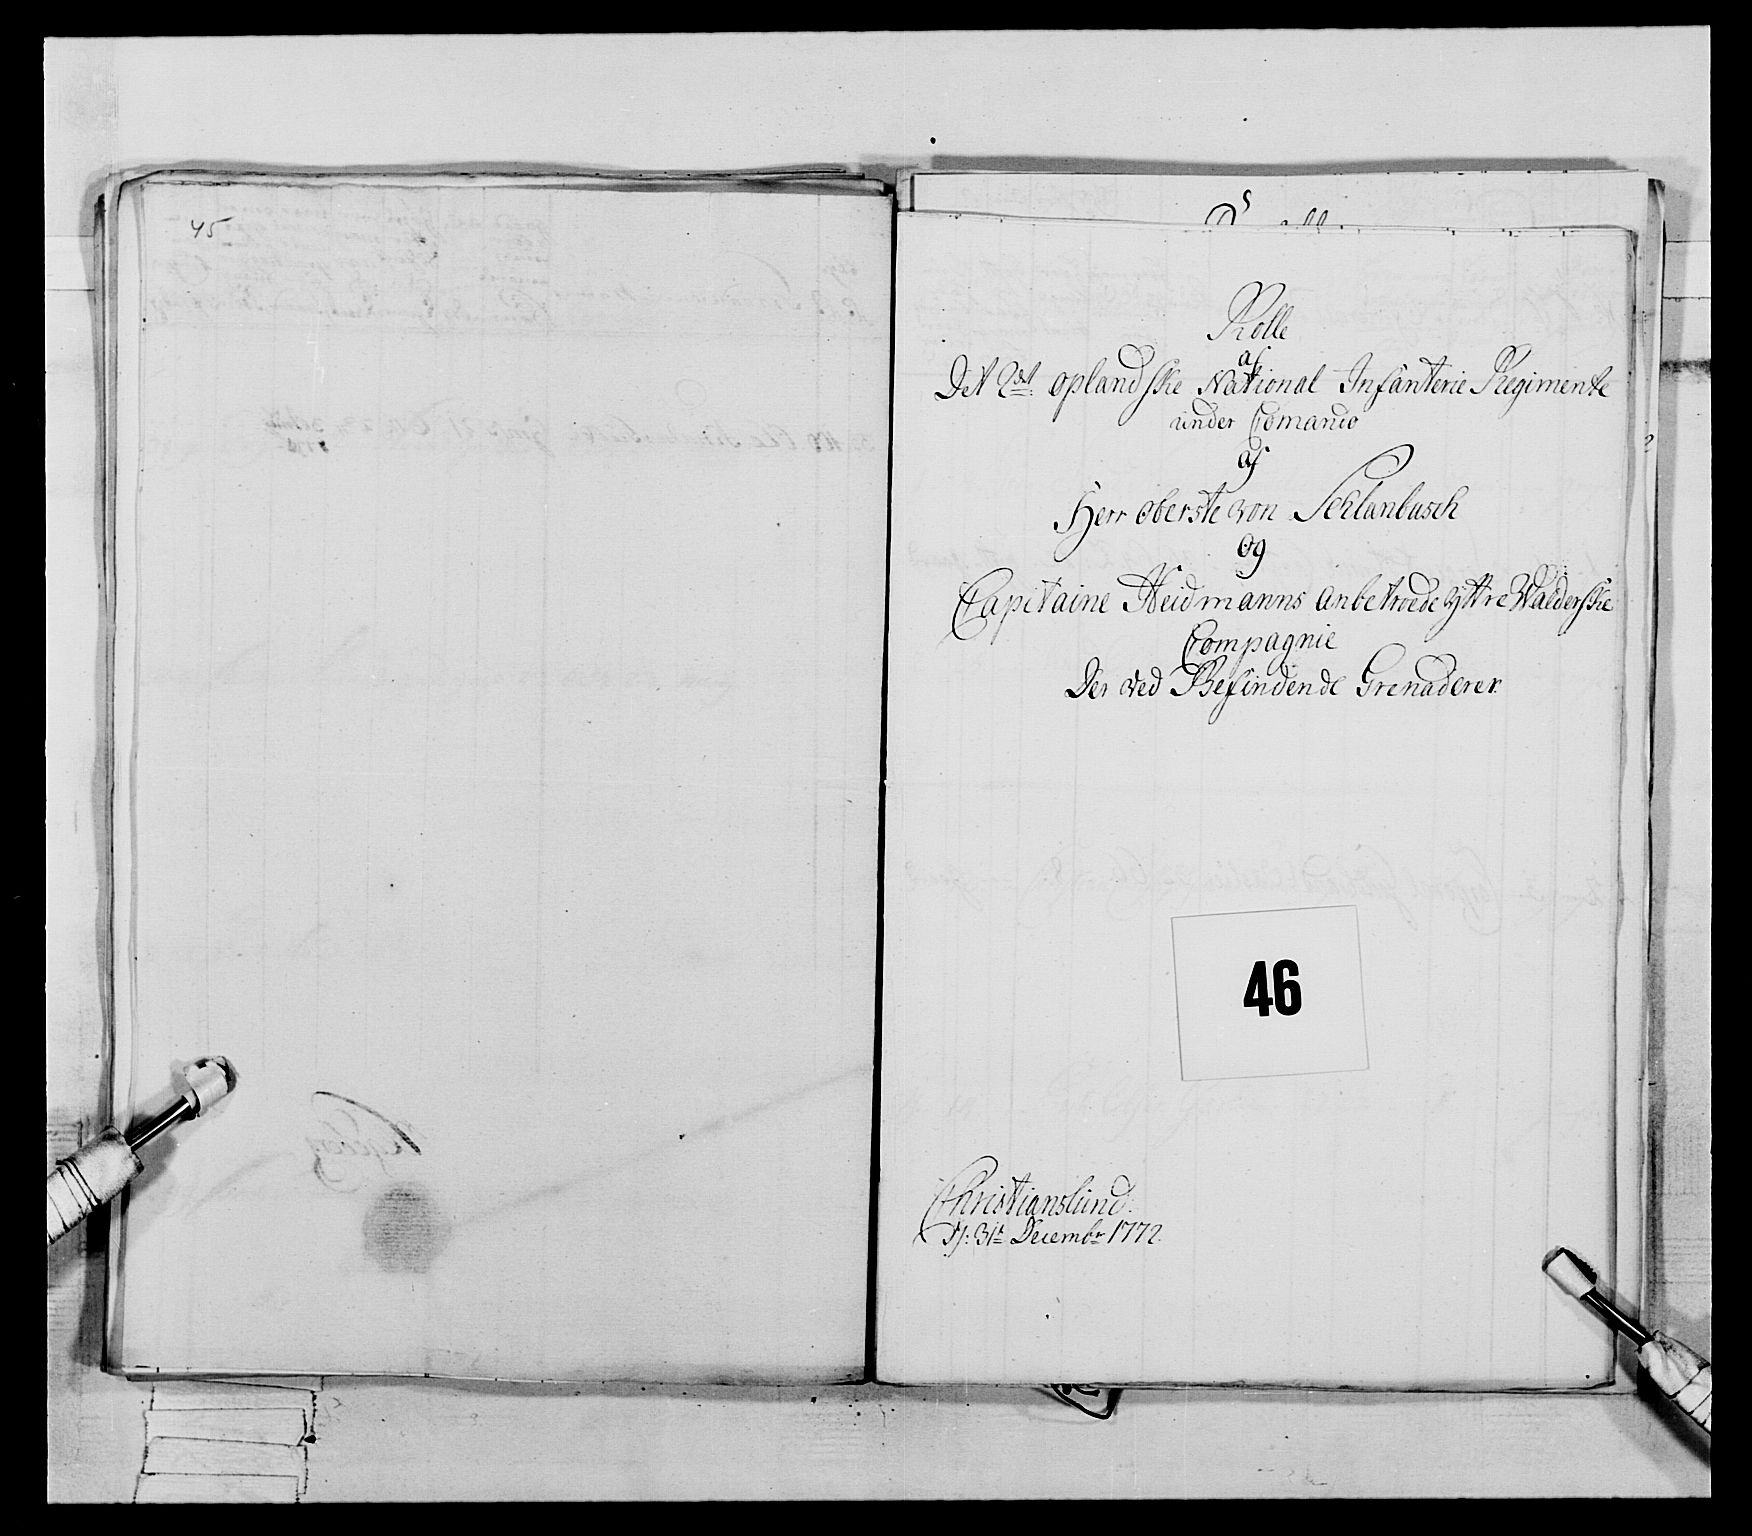 45
Rolle
af
Det 2det oplandske National Infanterie Regimente
under Comando
af
Herr Oberste von Schlanbusch
og
Capitaine Heidmanns Anbetroede yttre Walderske
Compagnie
Der ved Befindende Grenaderer
46
Christianslund
d: 31te Decembr 1772.